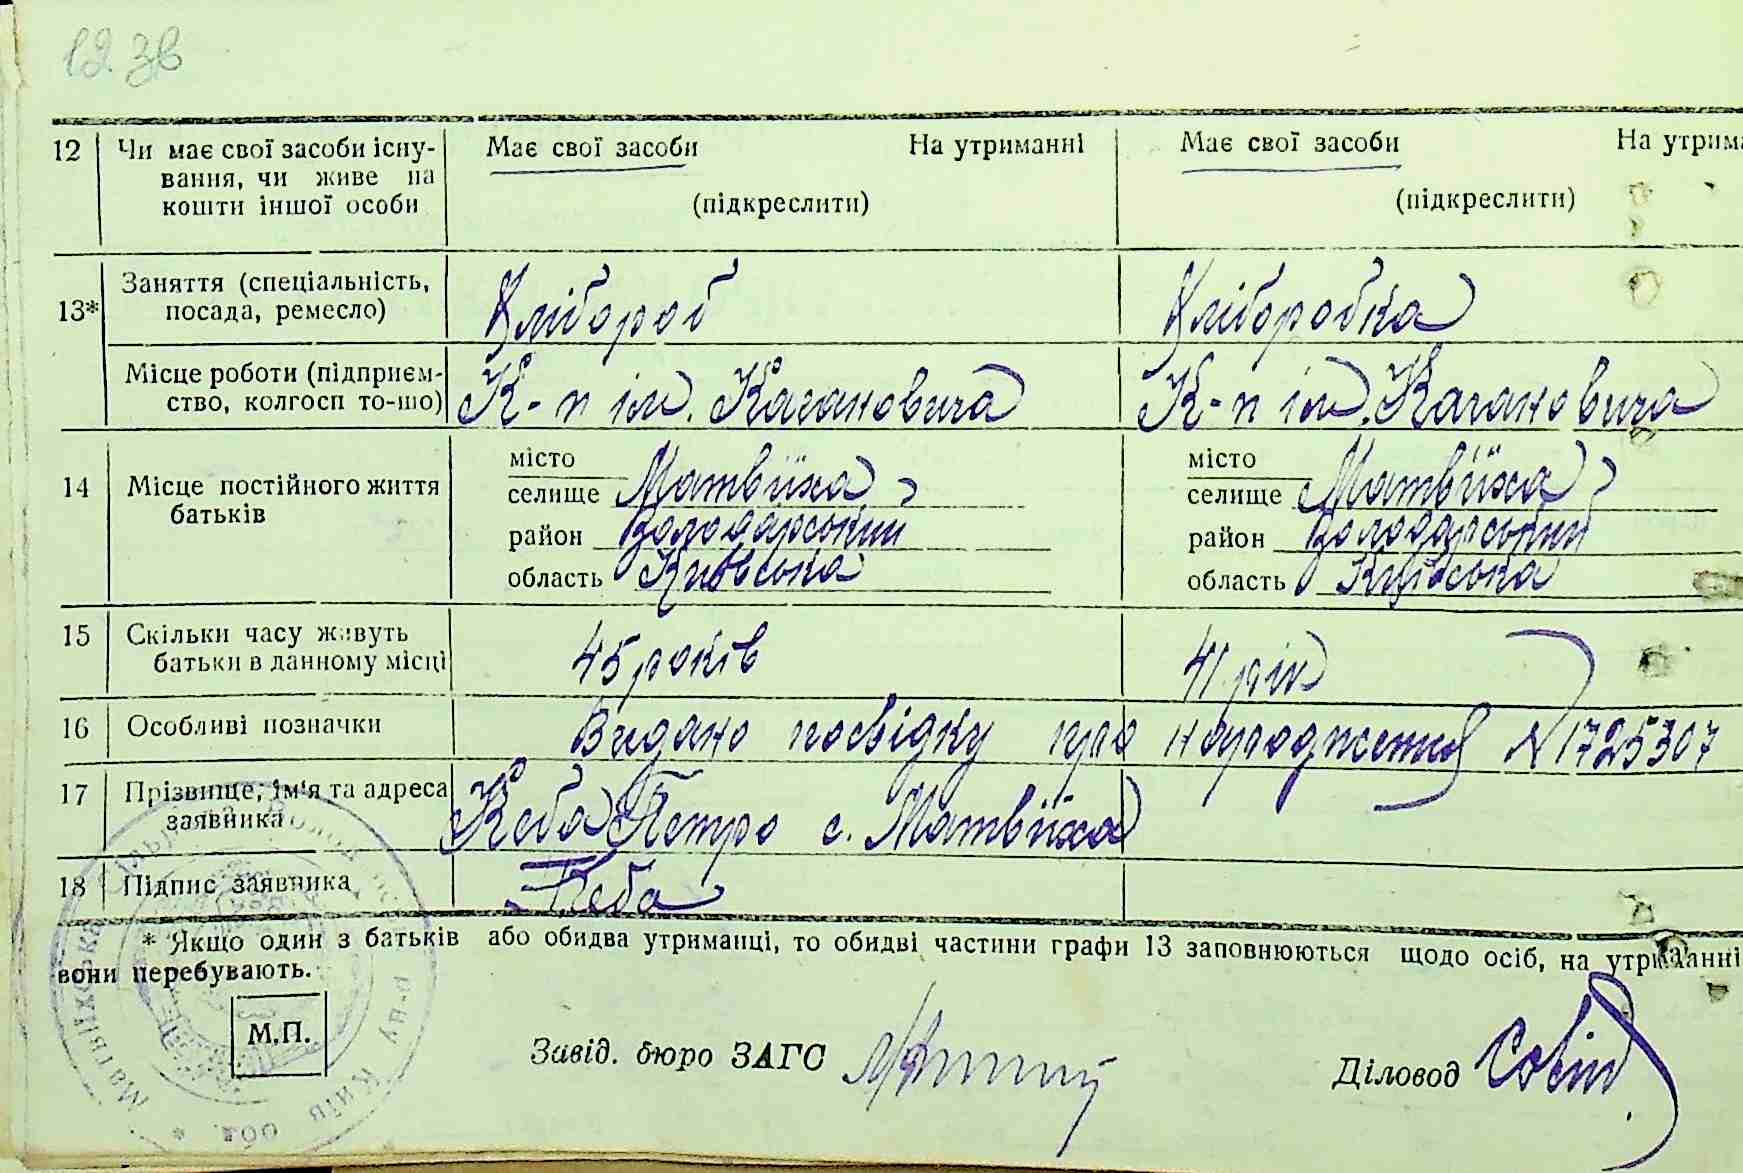 12. 38
12 Чи має свої засоби існу- Має свої засоби На утриманні Має свої засоби На утрима
вання, чи живе на
кошти іншої особи (підкреслити) (підкреслити)
13* Заняття (спеціальність, Хлібороб Хліборобка
посада, ремесло)
Місце роботи (підприєм- К-п ім. Кагановича К-п ім. Кагановича
ство, колгосп то-що)
місто місто
14 Місце постійного життя селище Матвіїха селище Матвіїха
батьків район Володарський район Володарський
область Київська область Київська
15 Скільки часу живуть 45 років 41 рік
батьки в данному місці
16 Особливі позначки Видано посвідку про народження № 1725307
17 Прізвище, ім'я та адреса Кеба Петро с. Матвіїха
заявника
18 Підпис заявника Кеба
* Якщо один з батьків або обидва утриманці, то обидві частини графи 13 заповнюються щодо осіб, на утриманні
вони перебувають.
М.П.
Завід. бюро ЗАГС
Діловод